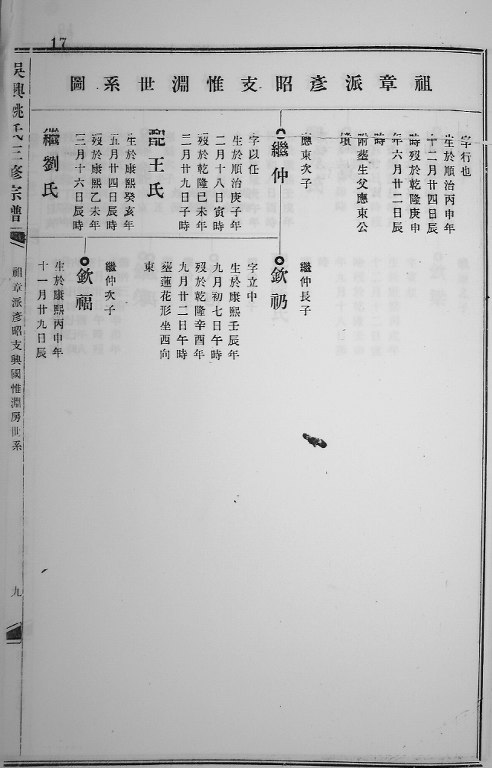 17
祖章派彥昭支惟淵世系圖
字行也
生於順治丙申年
十二月廿四日辰
時歿於乾隆庚申
年六月廿二日辰
時
附塟生父應東公
墳
應東次子
繼仲
字以任
生於順治庚子年
二月十八日寅時
歿於乾隆己未年
二月廿九日子時
配王氏
生於康熙癸亥年
五月廿四日辰時
歿於康熙乙未年
三月十六日辰時
繼劉氏
繼仲長子
欽礽
字立中
生於康熙壬辰年
九月初七日午時
歿於乾隆辛酉年
九月廿二日午時
塟蓮花形坐酉向
東
繼仲次子
欽福
生於康熙丙申年
十一月廿九日辰
吳興姚氏三修宗譜
祖章派彥昭支興國惟淵房世系
九